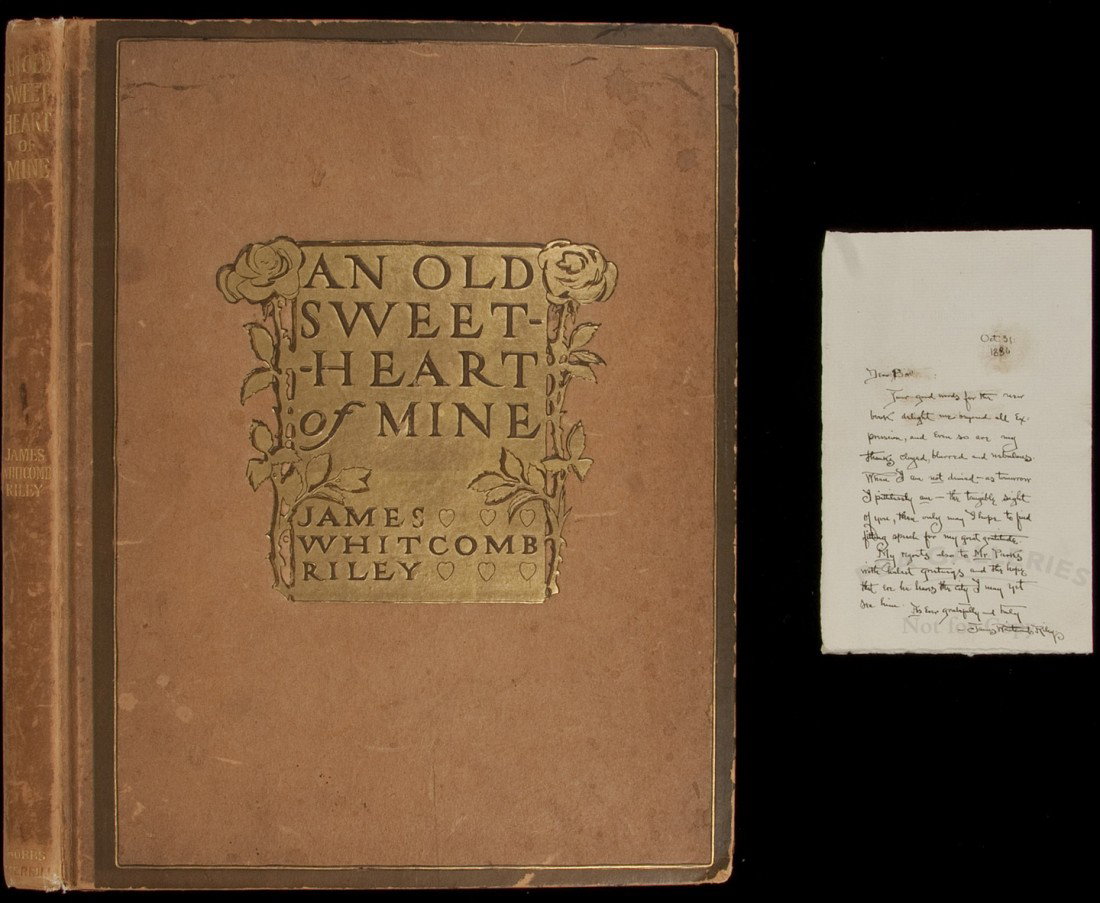 SWEET-
HEART
OF
MINE
JAMES
WHITCOMB
RILEY
AN OLD
SWEET-
-HEART
of MINE
JAMES
WHITCOMB
RILEY
Oct. 31
Dear
good words for the new
book delight me beyond all Ex-
pression, and Even so are my
thanks blurred and nebulous.
When I am not denied – as tomorrow
I am – the tangible sight
of you, then only may I hope to find
fitting speech for my great gratitude.
My regards also to Mr.
with greetings and the hope
that ere he leaves the city I may yet
see him. As Ever gratefully and truly
James Whitcomb Riley
Not for